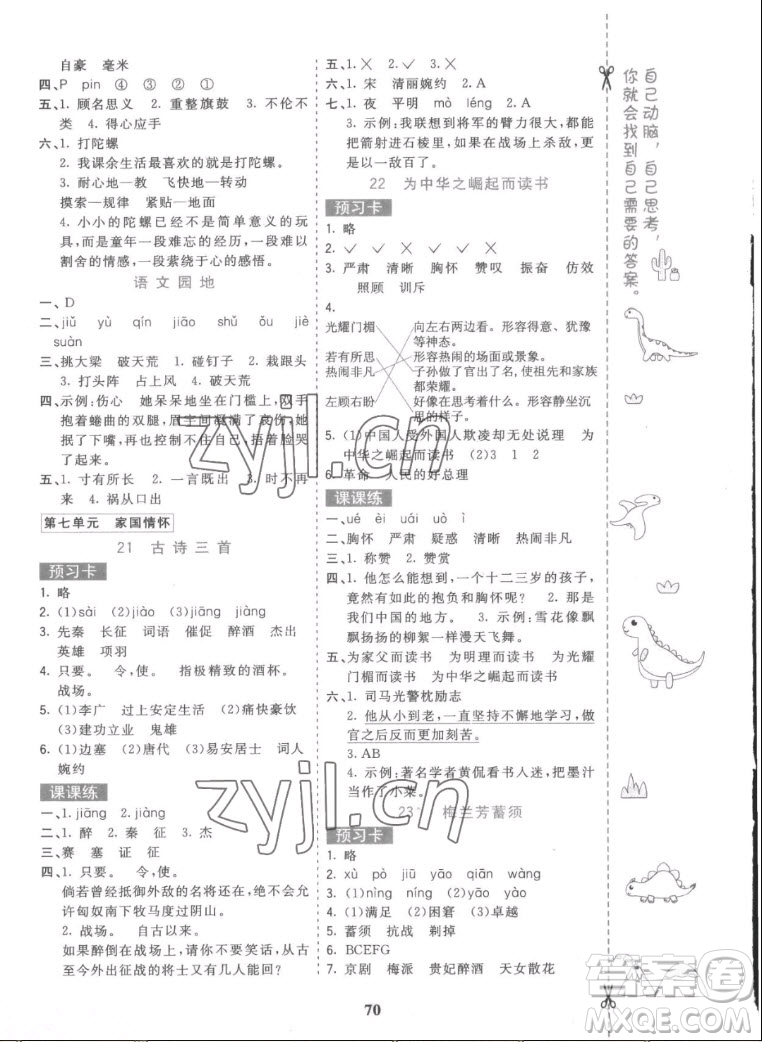 自豪 毫米
四、P pin ④ ③ ② ①
五、1. 顾名思义 2. 重整旗鼓 3. 不伦不
类 4. 得心应手
六、1. 打陀螺。
2. 我课余生活最喜欢的就是打陀螺。
3. 耐心地—教 飞快地—转动
摸索—规律 紧贴—地面
4. 小小的陀螺已经不是简单意义的玩
具,而是童年一段难忘的经历,一段难以
割舍的情感,一段萦绕于心的感悟。
语文园地
一、D
二、jiǔ yù qín jiāo shǔ ǒu jiè
suàn
三、挑大梁 破天荒 1. 碰钉子 2. 栽跟头
3. 打头阵 占上风 4. 破天荒
四、示例:伤心 她呆呆地坐在门槛上,双手
抱着蜷曲的双腿,眉宇间凝满了哀伤,她
抿了下嘴,再也控制不住自己,捂着脸哭
了起来。
五、1. 寸有所长 2. 一言既出 3. 时不再
来 4. 祸从口出
第七单元 家国情怀
21 古诗三首
预习卡
1. 略
2. (1)sài (2)jiào (3)jiāng jiàng
3. 先秦 长征 词语 催促 醉酒 杰出
英雄 项羽
4. 只要。 令,使。 指极精致的酒杯。
战场。
5. (1)李广 过上安定生活 (2)痛快豪饮
(3)建功立业 鬼雄
6. (1)边塞 (2)唐代 (3)易安居士 词人
婉约
课课练
一、1. jiāng 2. jiàng
二、1. 醉 2. 秦 征 3. 杰
三、赛 塞 证 征
四、1. 只要。 令,使。
倘若曾经抵御外敌的名将还在,绝不会允
许匈奴南下牧马度过阴山。
2. 战场。 自古以来。
如果醉倒在战场上,请你不要笑话,从古
至今外出征战的将士又有几人能回?
五、1. ╳ 2. ✓ 3. ✓ 4. ╳
六、1. 宋 清丽婉约 2. A
七、1. 夜 平明 mò léng 2. A
3. 示例:我联想到将军的臂力很大,都能
把箭射进石棱里,如果在战场上杀敌,更
是以一敌百了。
22 为中华之崛起而读书
预习卡
1. 略
2. ✓ ✓ ╳ ✓
3. 严肃 清晰 胸怀 赞叹 振奋 仿效
照顾 训斥
4.
光耀门楣 向左右两边看。形容得意、犹豫
等神态。
若有所思 形容热闹的场面或景象。
热闹非凡 子孙做了官出了名,使祖先和家族
都荣耀。
左顾右盼 好像在思考着什么。形容静坐沉
思的样子。
5. (1)中国人受外国人欺凌却无处说理 为
中华之崛起而读书 (2)3 1 2
6. 革命 人民的好总理
课课练
一、ué èi uái uò ì
二、胸怀 严肃 疑惑 清晰 热闹非凡
三、1. 称赞 2. 赞赏
四、1. 他怎么能想到,一个十二三岁的孩子,
竟然有如此的抱负和胸怀呢? 2. 那是
我们中国的地方。 3. 示例:雪花像飘
飘扬扬的柳絮一样漫天飞舞。
五、为家父而读书 为明理而读书 为光耀
门楣而读书
六、1. 司马光警枕励志
2. 他从小到老,一直坚持不懈地学习,做
官之后反而更加刻苦。
3. AB
4. 示例:著名学者黄侃看书入迷,把墨汁
当作了小菜。
23 梅兰芳蓄须
预习卡
1. 略
2. xù pò jiū zāo qiān wàng
3. (1)nìng níng (2)yāo yào
4. (1)满足 (2)困窘 (3)卓越
5. 蓄须 抗战 剃掉
6. BCEFG
7. 京剧 梅派 贵妃醉酒 天女散花
70
自己动脑,自己思考,
你就会找到自己需要的答案。
zyjl.cn
zyjl.cn
答案圈
MXQE.COM